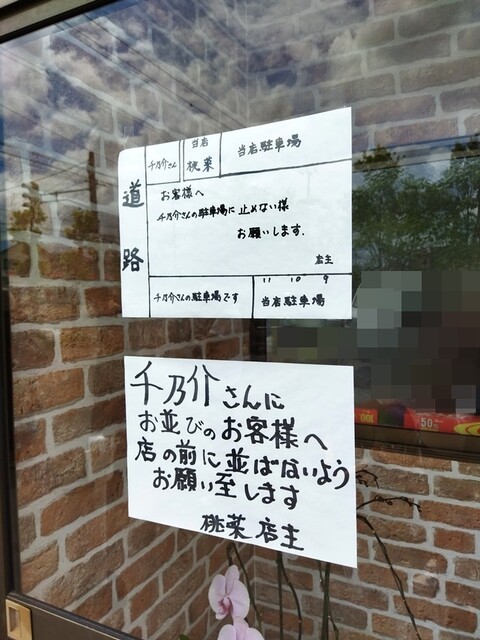 道路
千乃介さん
当店
桃菜
当店駐車場
お客様へ
千乃介さんの駐車場に止めない様
お願いします.
店主
千乃介さんの駐車場です
11 10 9
当店駐車場
千乃介さんに
お並びのお客様へ
店の前に並ばないよう
お願い致します
桃菜店主
100
50